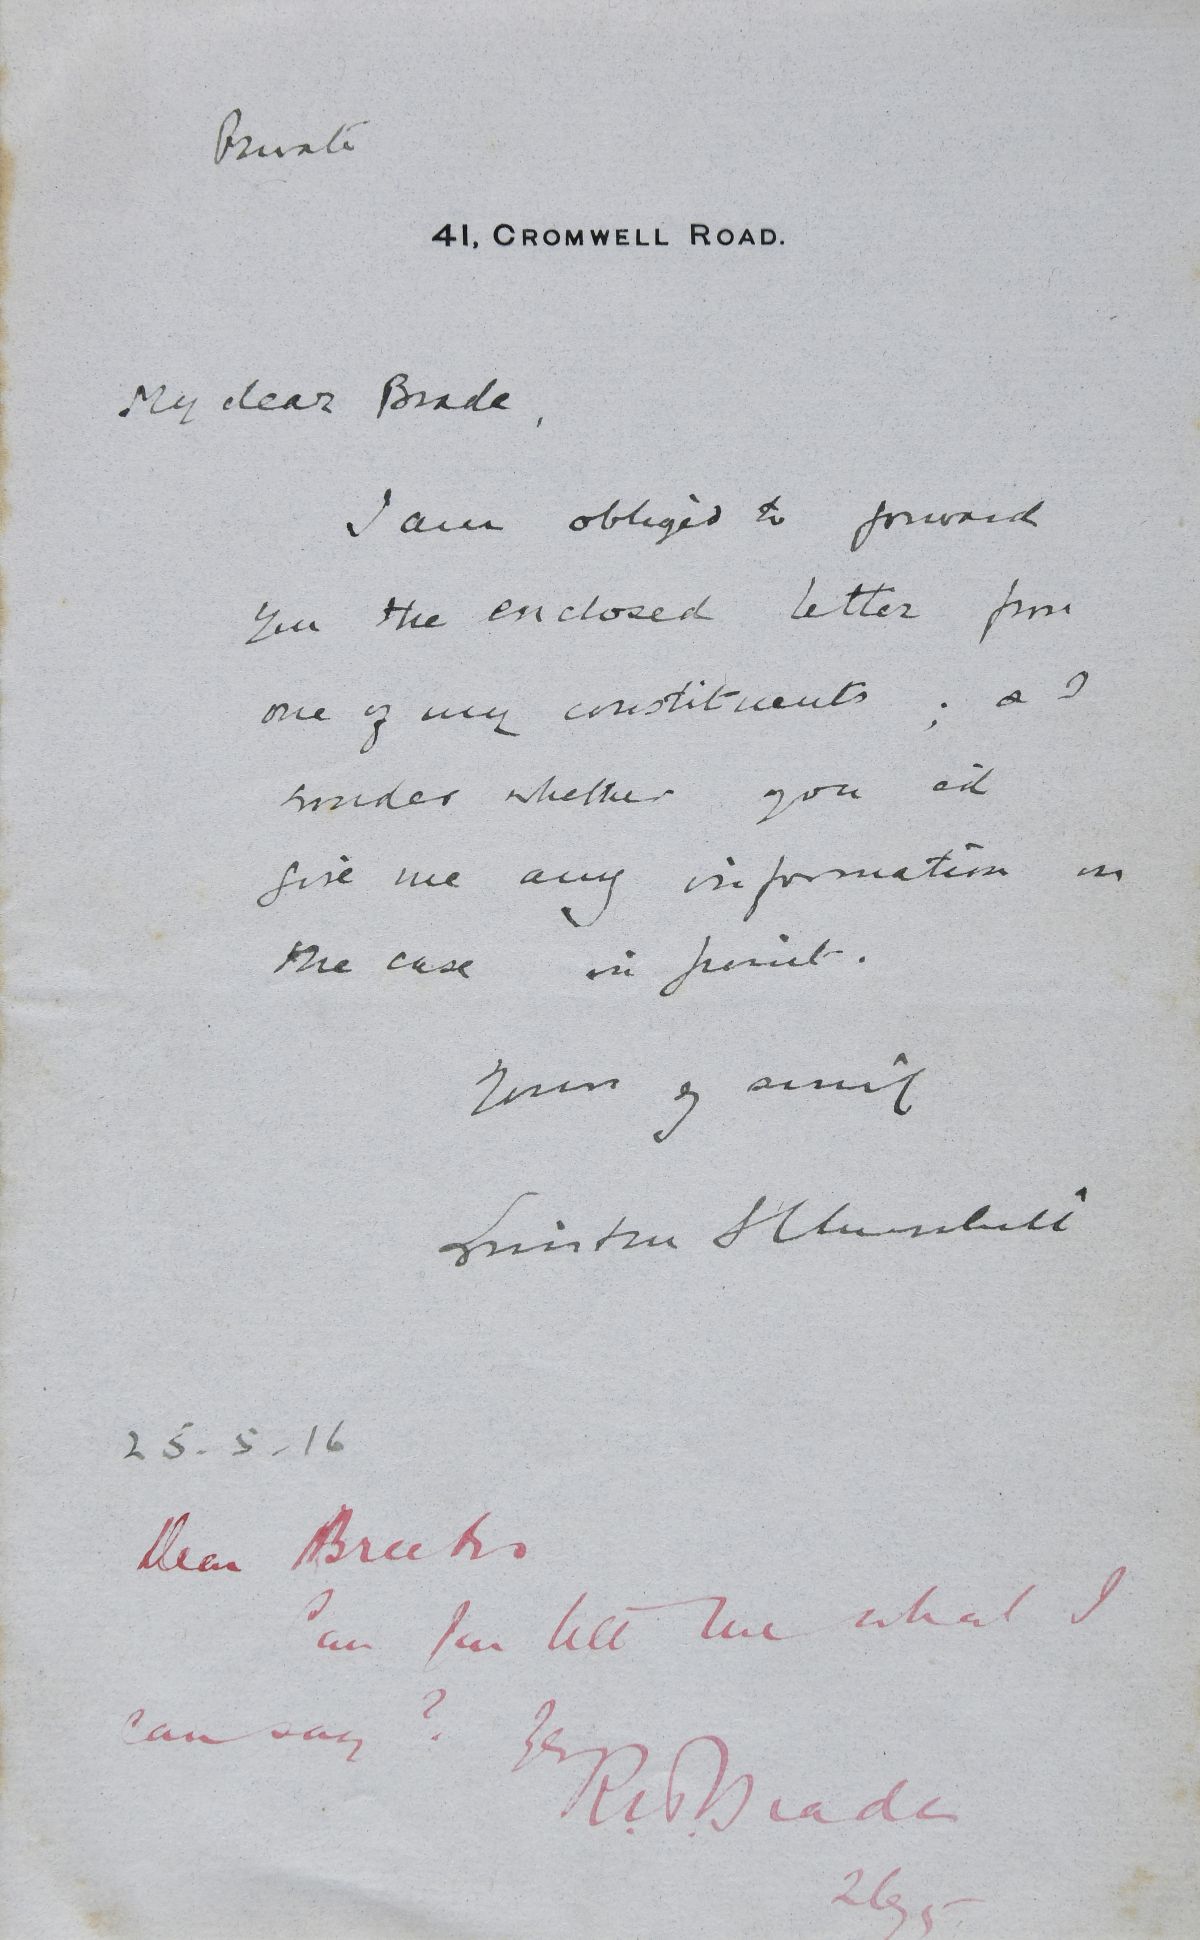 Private
41, CROMWELL ROAD.
My dear Brade,
I am obliged to forward
you the enclosed letter from
one of my constituents; & I
wonder whether you cd
give me any information on
the case in point.
Yours
Winston S Churchill
25-5-16
Dear
Can you tell me what I
can say?
R. H. Brade
26/5